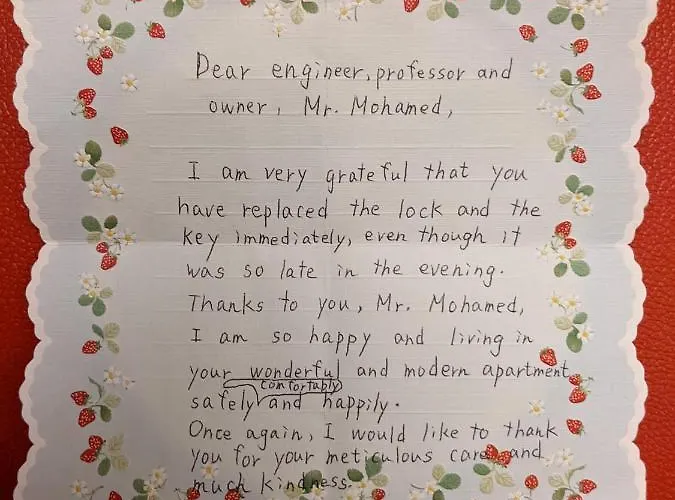 Dear engineer, professor and
owner, Mr. Mohamed,
I am very grateful that you
have replaced the lock and the
key immediately, even though it
was so late in the evening.
Thanks to you, Mr. Mohamed,
I am so happy and living in
your wonderful and modern apartment
comfortably
safely and happily.
Once again, I would like to thank
you for your meticulous care and
much kindness.